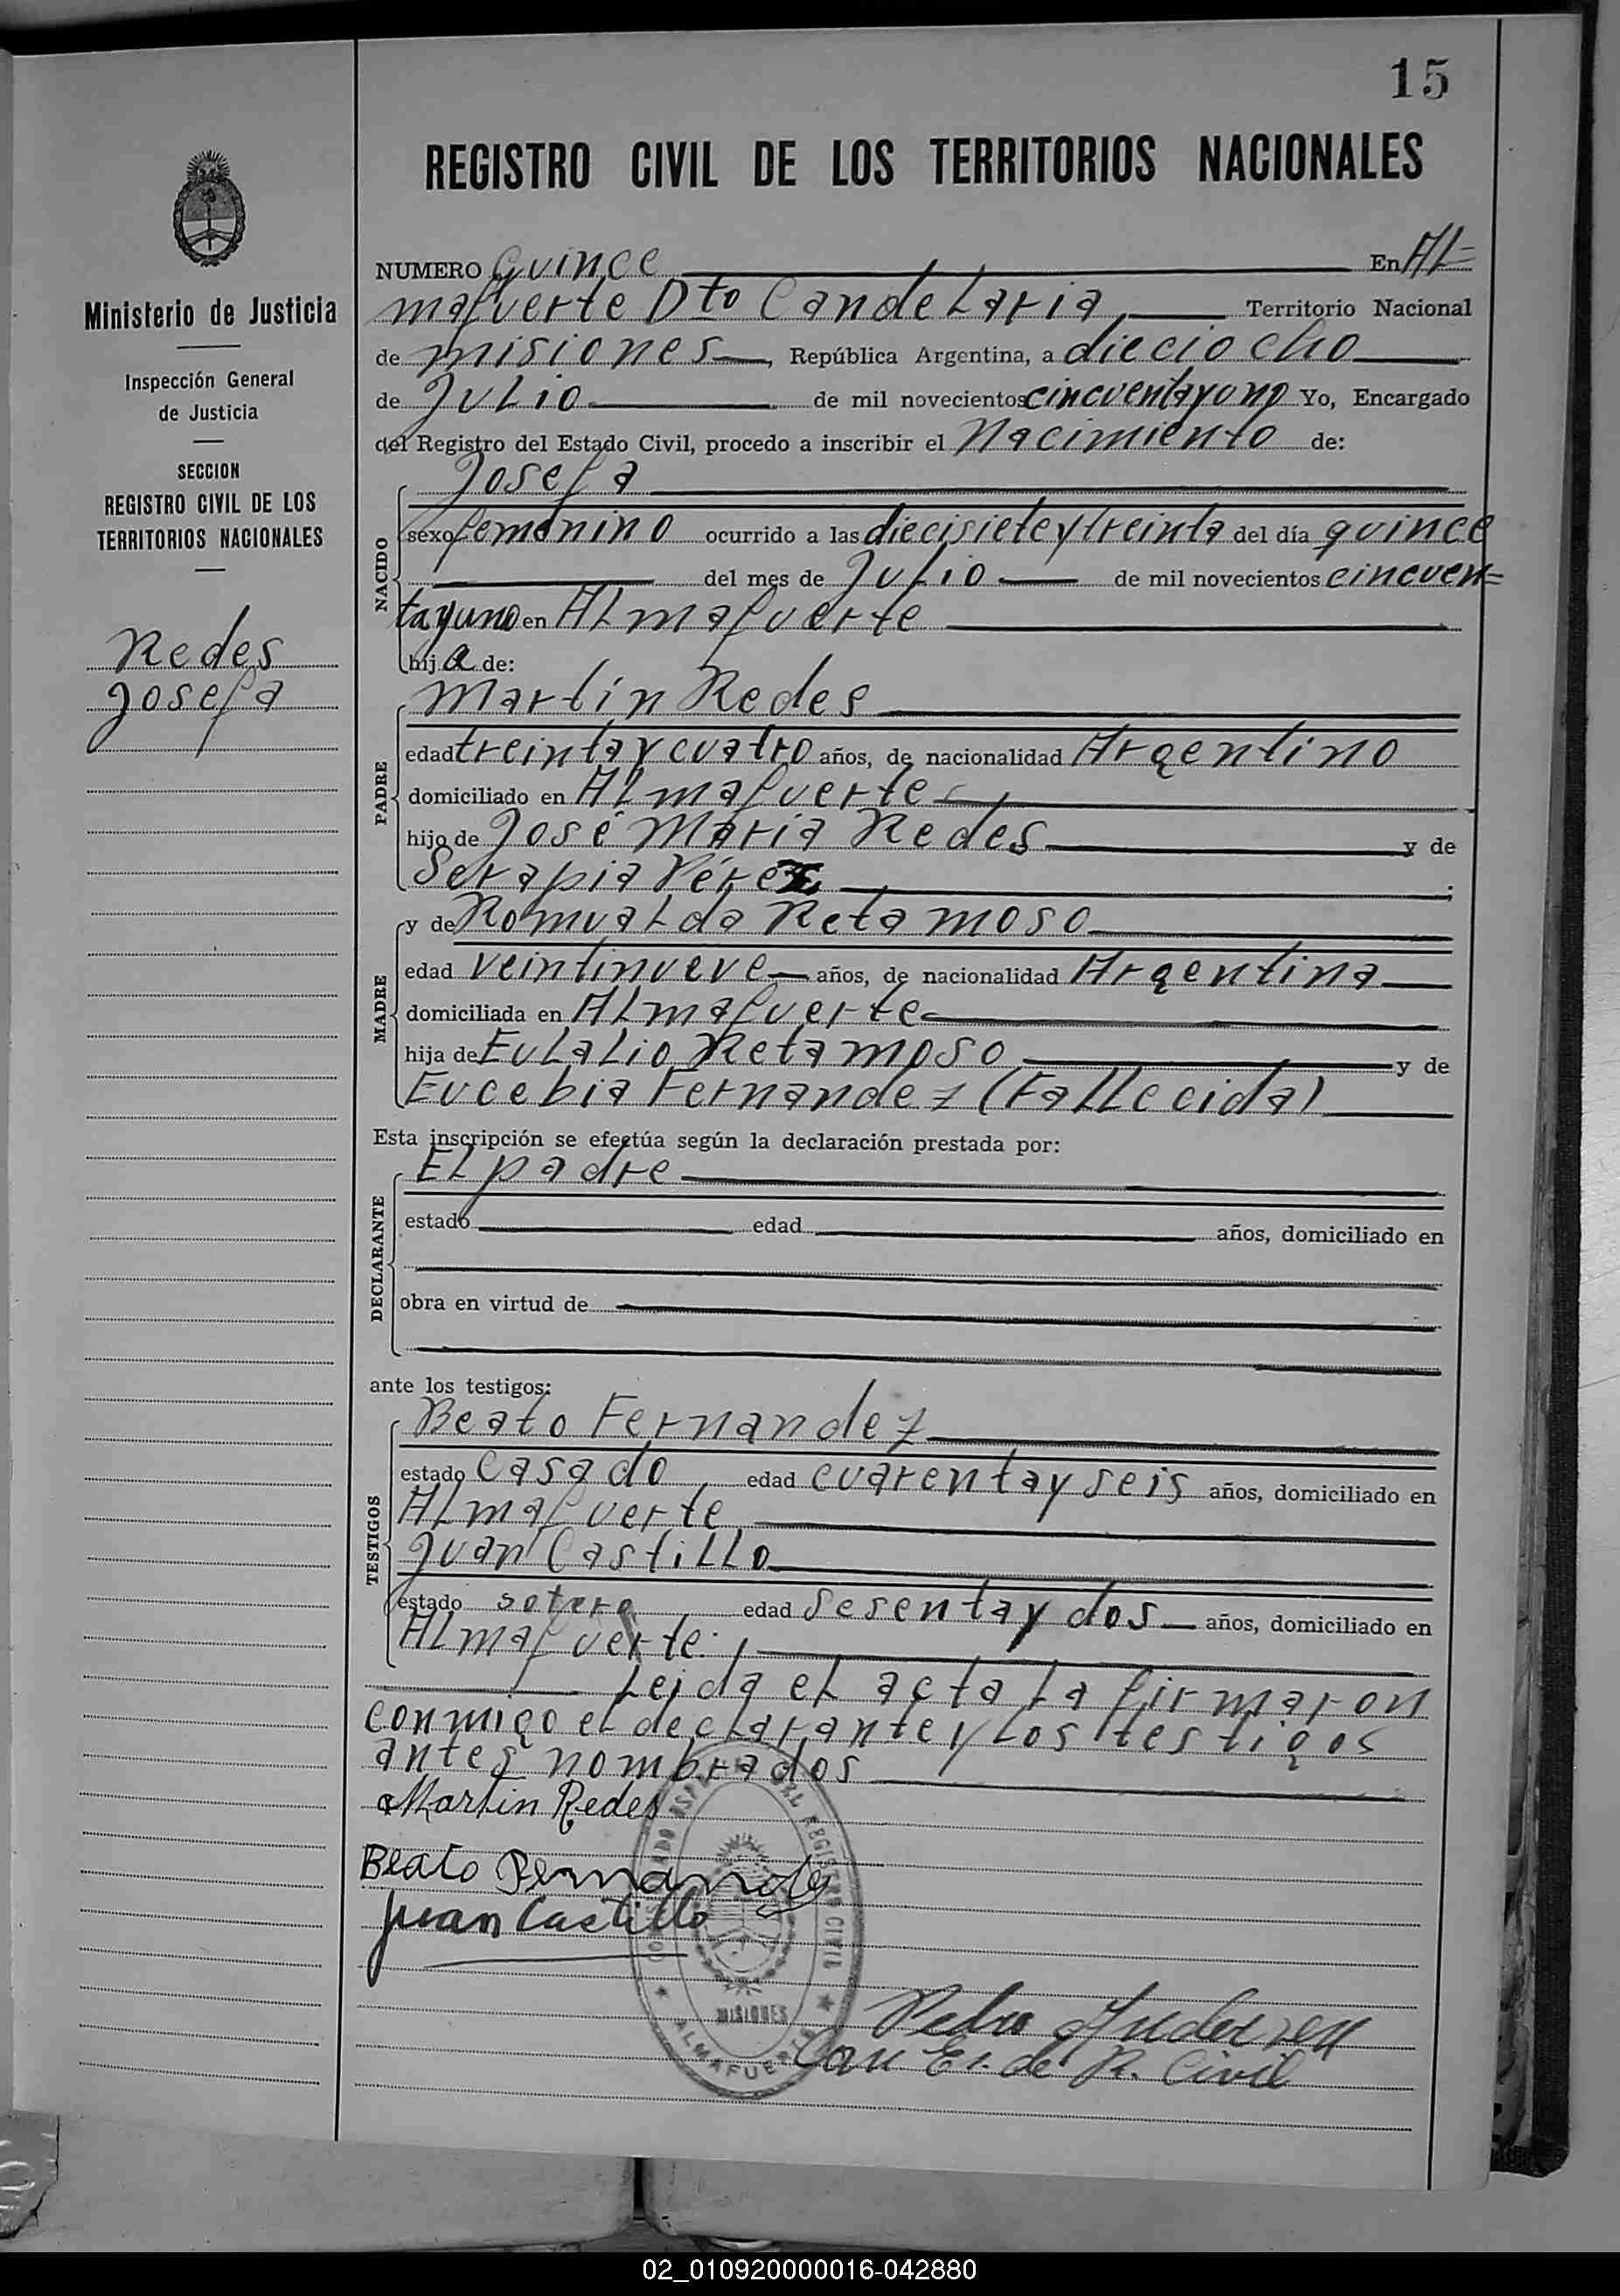 15
REGISTRO CIVIL DE LOS TERRITORIOS NACIONALES
Ministerio de Justicia
Inspección General
de Justicia
SECCION
REGISTRO CIVIL DE LOS
TERRITORIOS NACIONALES
Redes
Josefa
NUMERO Quince En Al=
mafuerte Dto Candelaria, Territorio Nacional
de misiones, República Argentina, a dieciocho
de Julio de mil novecientos cincuentayuno Yo, Encargado
del Registro del Estado Civil, procedo a inscribir el Nacimiento de:
Josefa
NACIDO
sexo femenino ocurrido a las diecisieteytreinta del día quince
del mes de Julio de mil novecientos cincuen=
tayuno en Almafuerte
hija de:
Martín Redes
PADRE
edad treintaycuatro años, de nacionalidad Argentino
domiciliado en Almafuerte
hijo de José María Redes y de
Serapia Pérez
MADRE
y de Romualda Retamoso
edad veintinueve años, de nacionalidad Argentina
domiciliada en Almafuerte
hija de Eulalio Retamoso y de
Eucebia Fernandez (Fallecida)
Esta inscripción se efectúa según la declaración prestada por:
El padre
DECLARANTE
estado edad años, domiciliado en
obra en virtud de
ante los testigos:
Beato Fernandez
TESTIGOS
estado casado edad cuarentayseis años, domiciliado en
Almafuerte
Juan Castillo
estado edad sesentaydos años, domiciliado en
Almafuerte.
Leida el acta la firmaron
conmigo el declarante y los testigos
antes nombrados
Martin Redes
Beato Fernandez
Juan Castillo
REGISTRO CIVIL
MISIONES
ALMAFUERTE
Pedro
En. de R. Civil
02_010920000016-042880